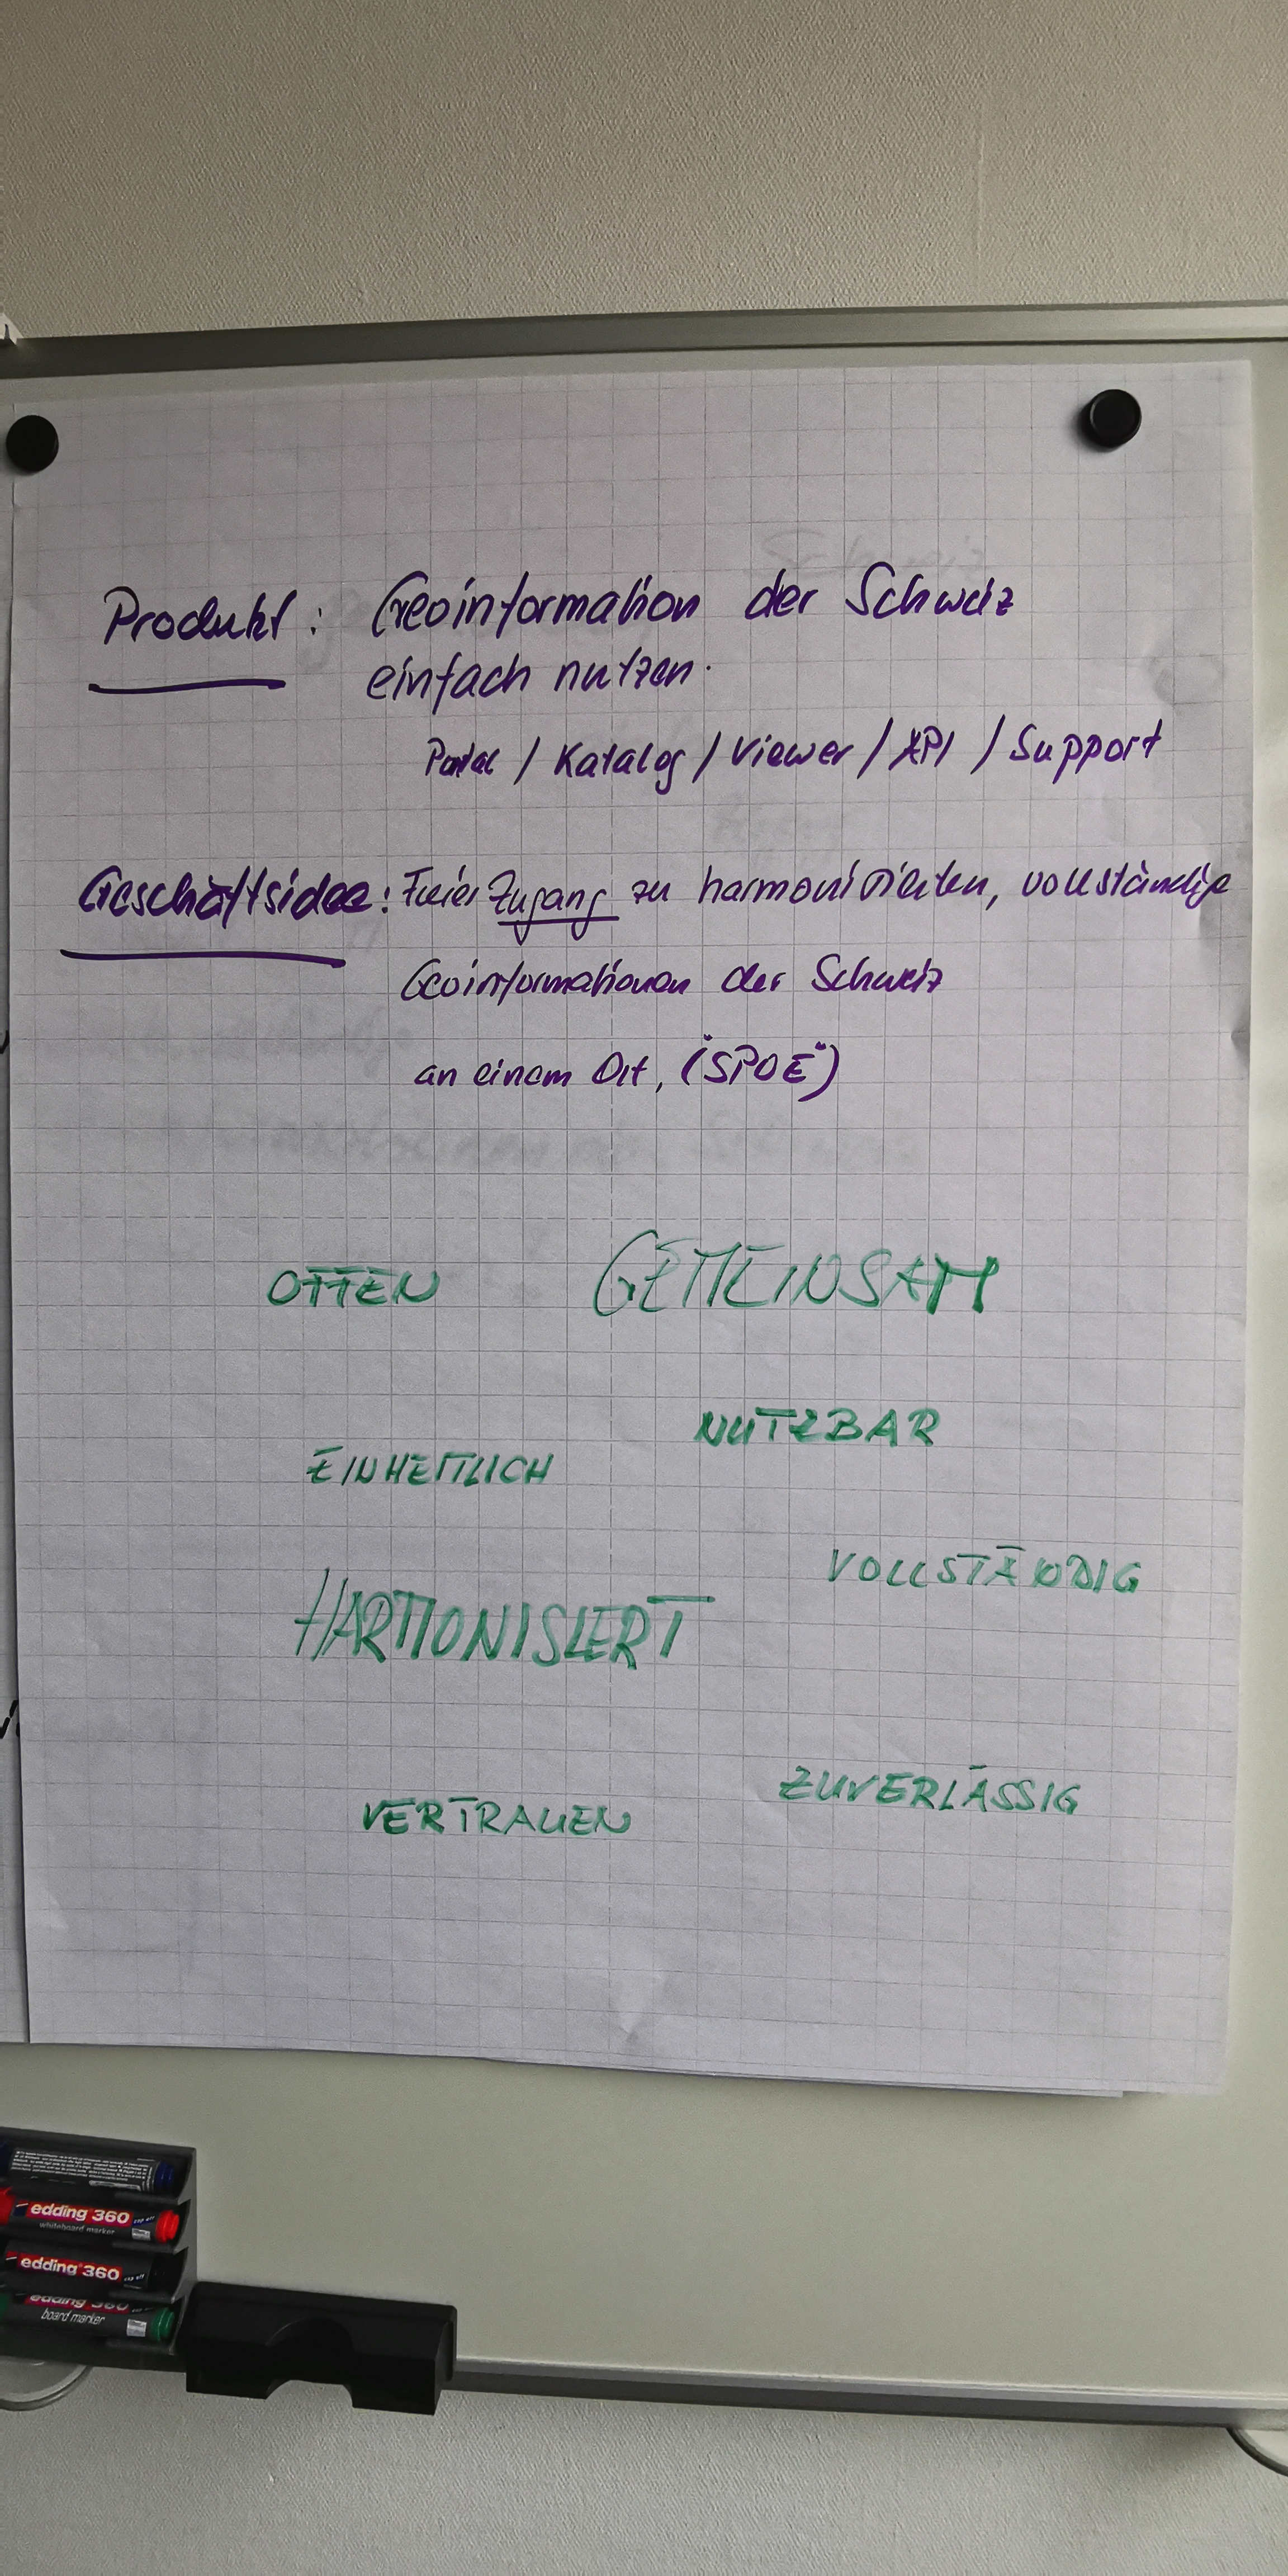 Produkt: Geoinformation der Schweiz
einfach nutzen.
Portal / Katalog / Viewer / API / Support
Geschäftsidee: Freier Zugang zu harmonisierten, vollständige
Geoinformationen der Schweiz
an einem Ort, ("SPOE")
OFFEN GEMEINSAM
NUTZBAR
EINHEITLICH
VOLLSTÄNDIG
HARMONISIERT
ZUVERLÄSSIG
VERTRAUEN
edding 360
whiteboard marker
edding 360
edding 360
board marker